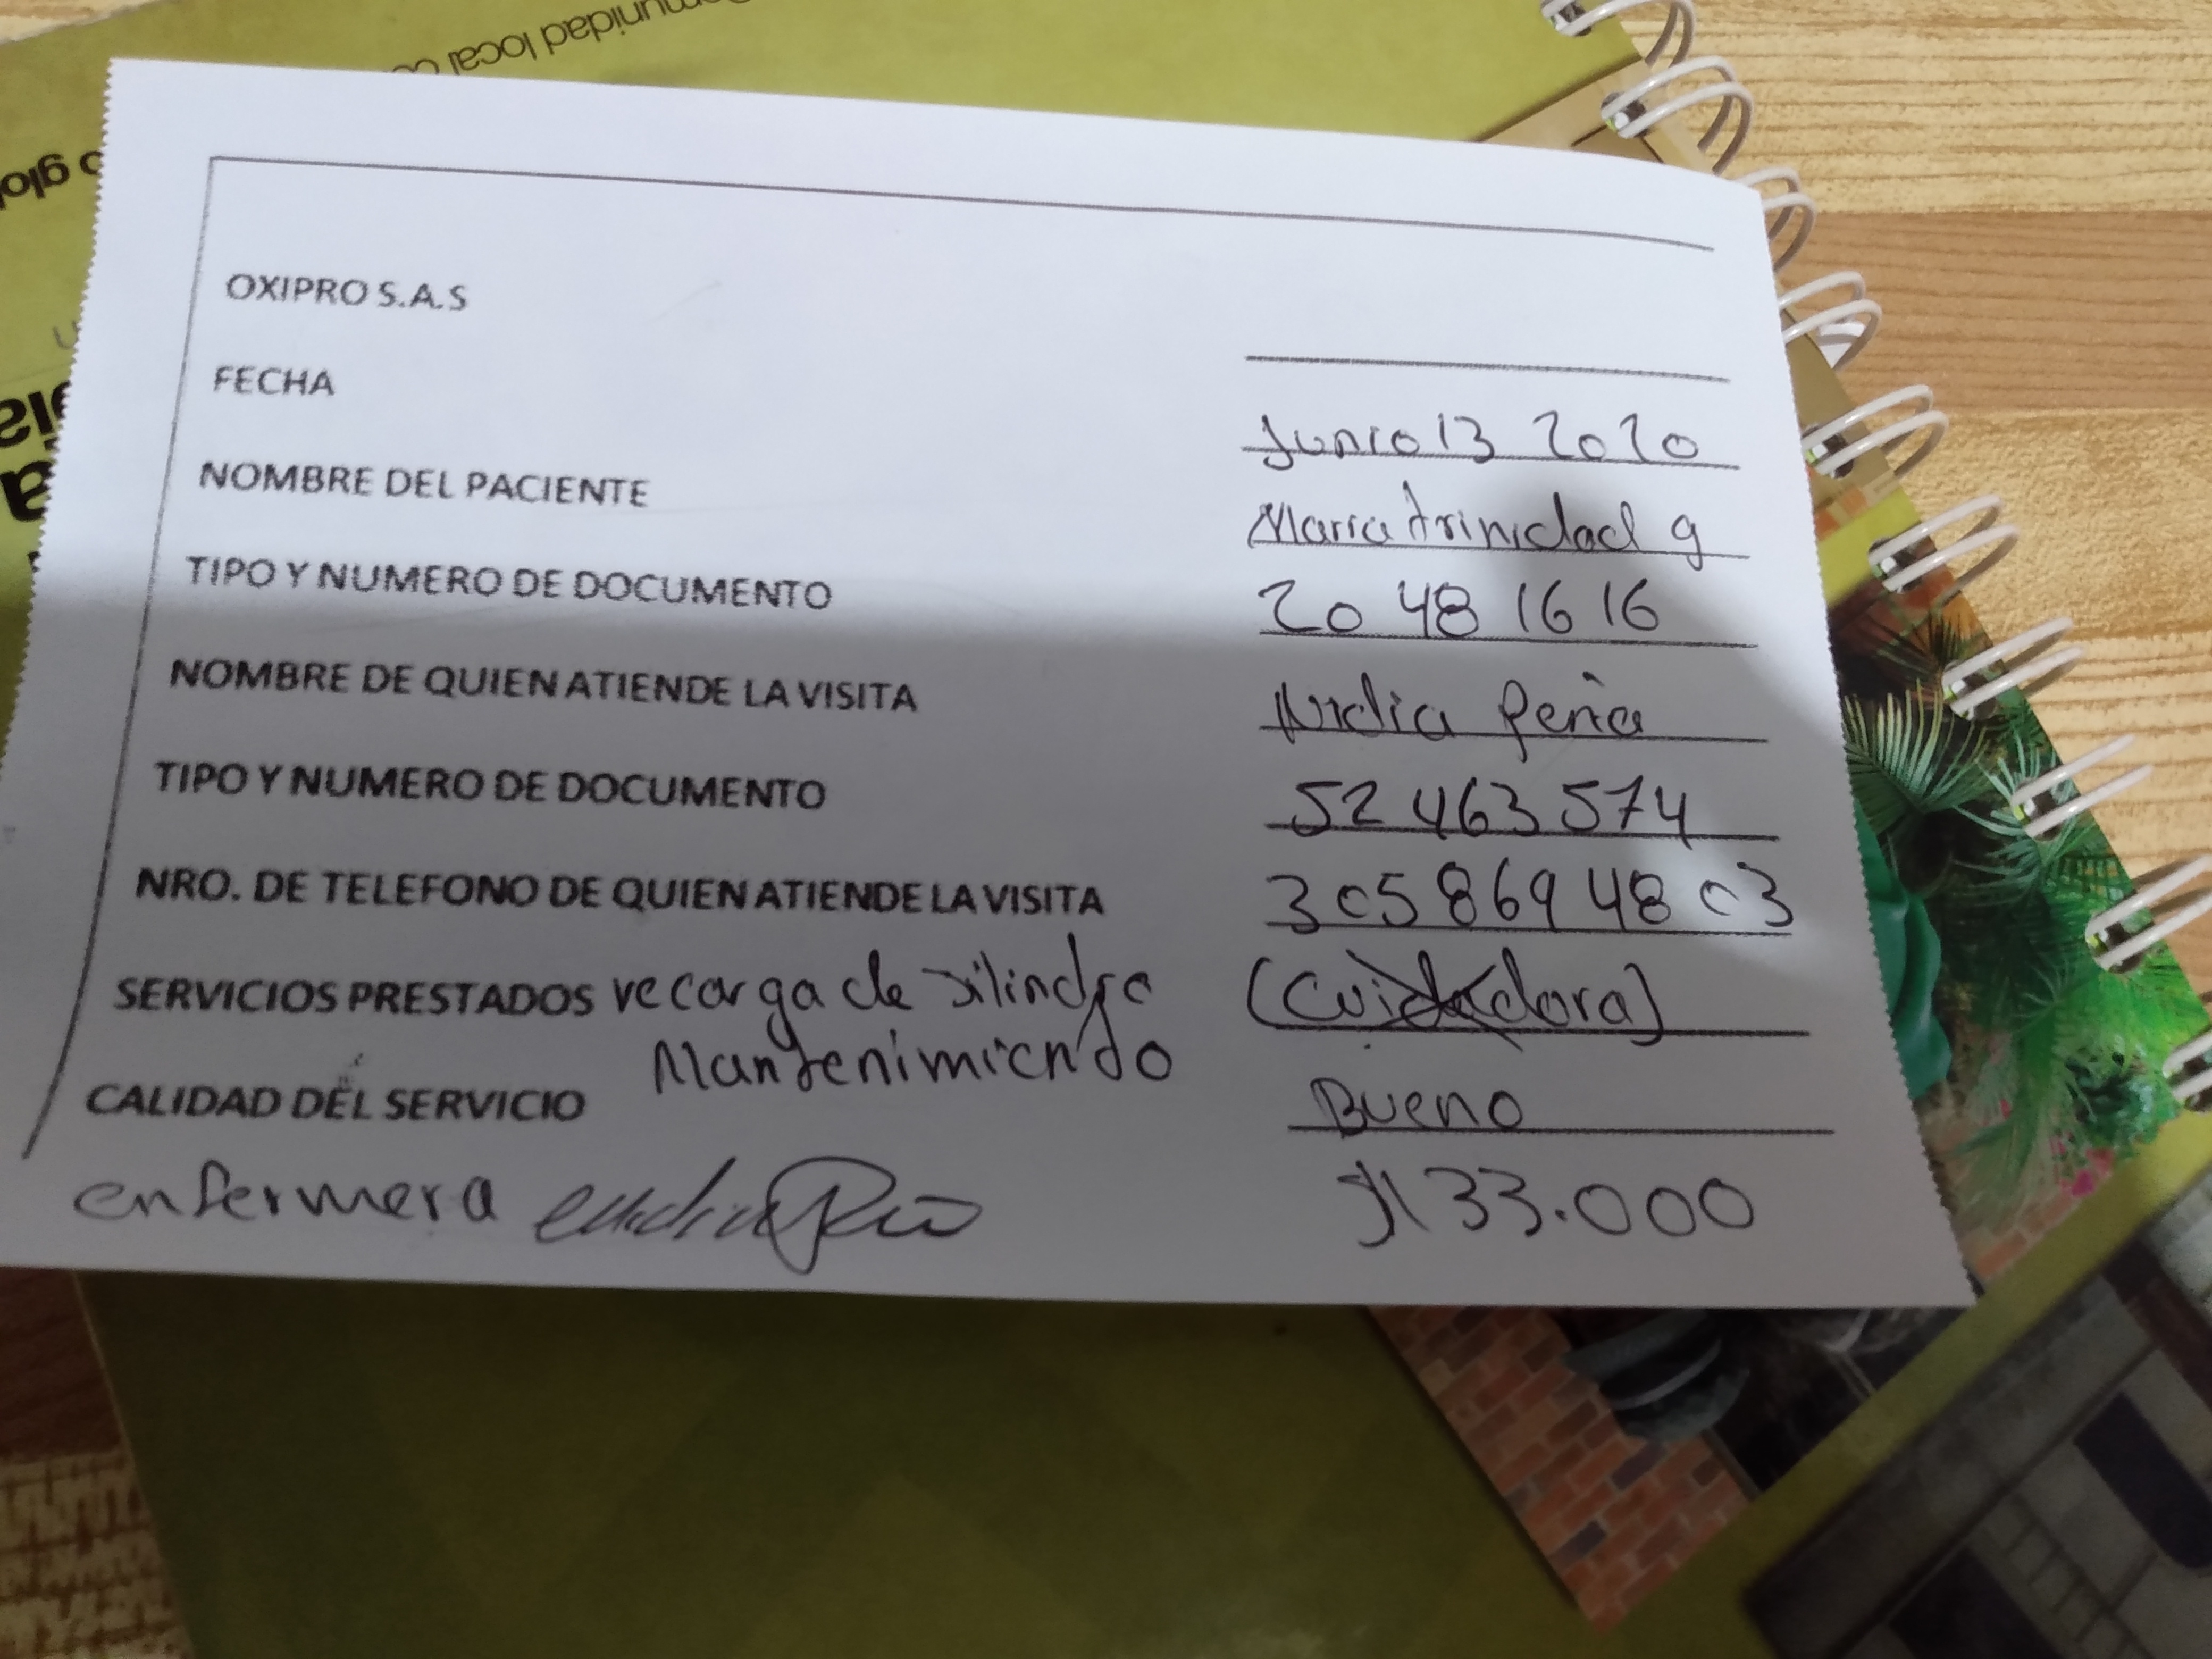 omunidad local co
o glol
OXIPRO S.A.S
FECHA Junio 13 2020
NOMBRE DEL PACIENTE Maria trinidad g
TIPO Y NUMERO DE DOCUMENTO 20 48 16 16
NOMBRE DE QUIEN ATIENDE LA VISITA Nidia Peña
TIPO Y NUMERO DE DOCUMENTO 52 463 574
NRO. DE TELEFONO DE QUIEN ATIENDE LA VISITA 305 869 48 03
SERVICIOS PRESTADOS recarga de silindro (Cuidadora)
Mantenimiento
CALIDAD DEL SERVICIO Bueno
enfermera 133.000